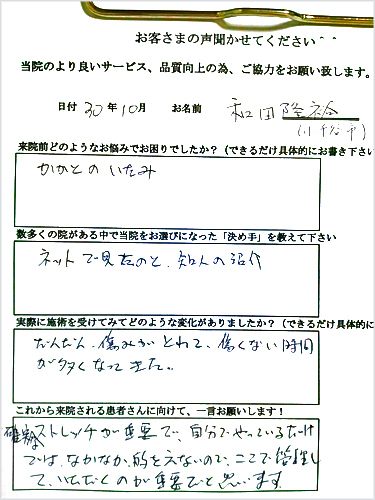 お客さまの声聞かせてください^^
当院のより良いサービス、品質向上の為、ご協力をお願い致します。
日付 30年10月 お名前 和田隆裕
来院前どのようなお悩みでお困りでしたか？（できるだけ具体的にお書き下さい
かかとのいたみ
数多くの院がある中で当院をお選びになった「決め手」を教えて下さい
ネットで見たのと、知人の紹介
実際に施術を受けてみてどのような変化がありましたか？（できるだけ具体的に
だんだん、傷みがとれて、傷くない時間
が多くなってきた。
これから来院される患者さんに向けて、一言お願いします！
確実な
ストレッチが重要で、自分でやっているだけ
では、なかなか、的をえないので、ここで管理し
て、いただくのが重要だと思います